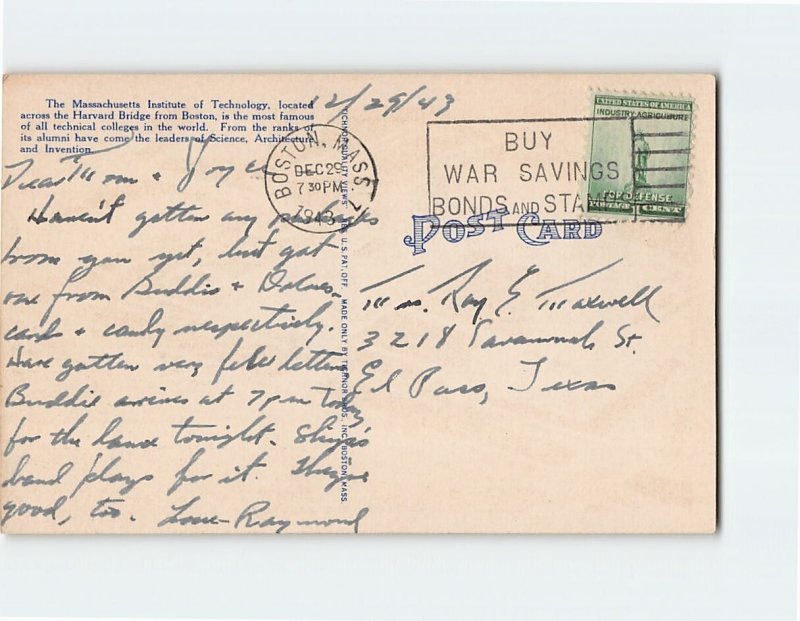 The Massachusetts Institute of Technology, located
across the Harvard Bridge from Boston, is the most famous
of all technical colleges in the world. From the ranks of
its alumni have come the leaders of Science, Architecture
and Invention.
12/29/43
Dear Mom + Joyce
Haven't gotten any packages
from you yet, but got
one from Buddie + Dolores
cards + candy respectively.
Have gotten very few letters
Buddie arrives at 7 pm today
for the dance tonight.
band plays for it. They're
good, too. Love - Raymond
BOSTON, MASS.
DEC 29
7 30 PM
1943
BUY
WAR SAVINGS
BONDS AND STAMPS
UNITED STATES OF AMERICA
INDUSTRY AGRICULTURE
FOR DEFENSE
POSTAGE CENT
POST CARD
Mrs. Ray E. Maxwell
3218 Savannah St.
El Paso, Texas
TICHNOR QUALITY VIEWS REG. U. S. PAT. OFF. MADE ONLY BY TICHNOR BROS. INC. BOSTON, MASS.